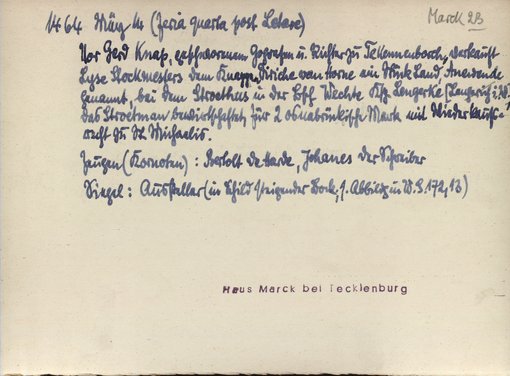 1464 März 14 (feria quarta post Letare)
Marck 23
Vor Gerd Knap, geschworenem Gografen u. Richter zu Tekenenborch, verkauft
Lyse Stockmesters dem Knappen Hinricke van Horne ein Stück Land, Anewende
genannt, bei dem Stroethus in der Bsch. Wechte Ksp. Lengerke (Lengerich i.W.)
das Stroetman bewirtschaftet, für 2 osnabrückische Mark mit Wiederkaufs-
recht zu St. Michaelis.
Zeugen (Kornoten): Bertolt de Harde, Johanes der Schreiber
Siegel: Aussteller (in Schild steigender Bock; s. Abbildg in W.S. 172, 13)
Haus Marck bei Tecklenburg